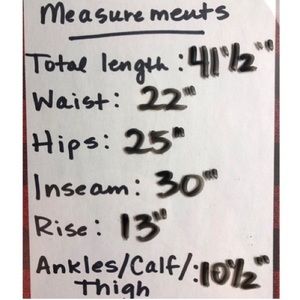 Measurements
Total length: 41½"
Waist: 22"
Hips: 25"
Inseam: 30"
Rise: 13"
Ankles/Calf/: 10½"
Thigh